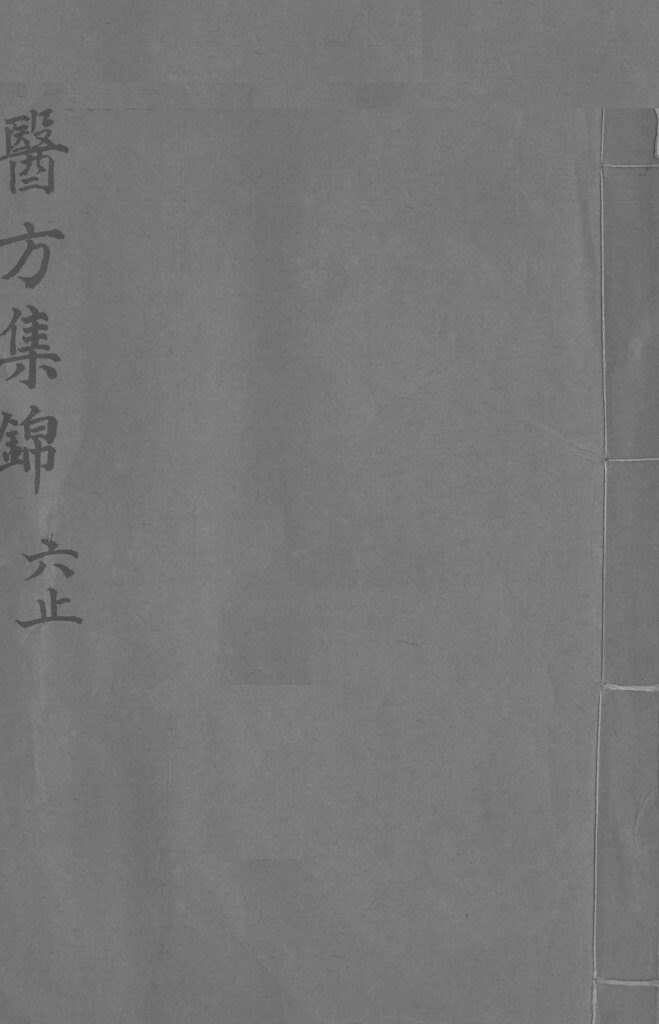 醫方集錦 六止